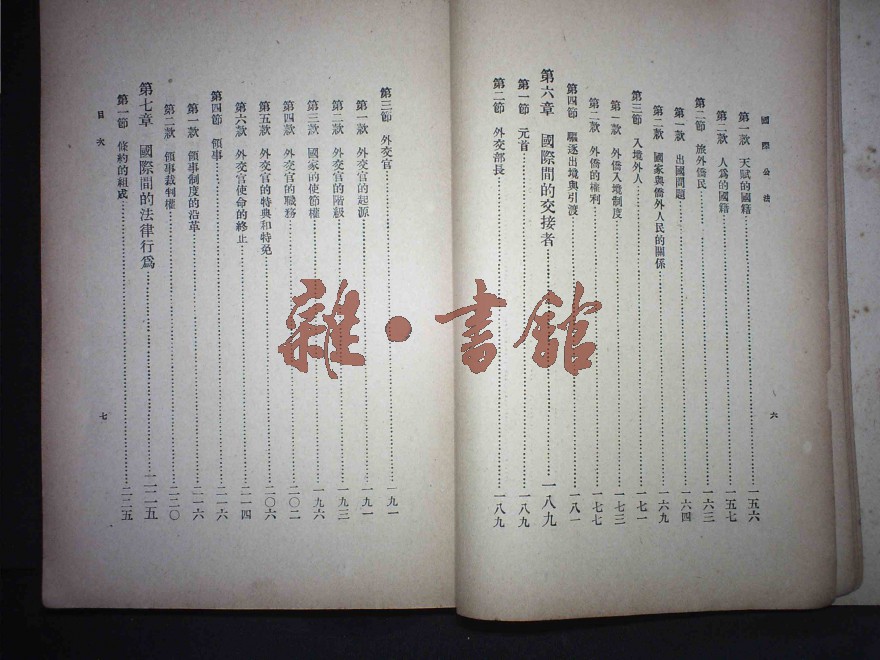 國際公法
六
第一款 天賦的國籍 一五六
第二款 人為的國籍 一五七
第二節 旅外僑民 一六三
第一款 出國問題 一六四
第二款 國家與僑外人民的關係 一六九
第三節 入境外人 一七一
第一款 外僑入境制度 一七三
第二款 外僑的權利 一七七
第四節 驅逐出境與引渡 一八一
第六章 國際間的交接者 一八九
第一節 元首 一八九
第二節 外交部長 一八九
第三節 外交官 一九一
第一款 外交官的起源 一九一
第二款 外交官的階級 一九三
第三款 國家的使節權 一九六
第四款 外交官的職務 二〇二
第五款 外交官的特典和特免 二〇六
第六款 外交官使命的終止 二一四
第四節 領事 二一六
第一款 領事制度的沿革 二一六
第二款 領事裁判權 二二〇
第七章 國際間的法律行爲 二二五
第一節 條約的組成 二二五
目次
七
雜·書館